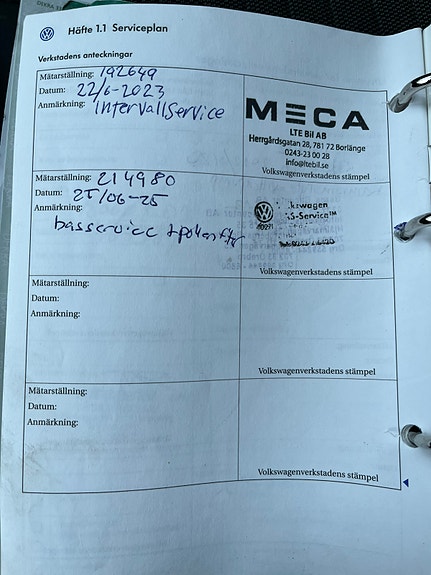 Häfte 1.1 Serviceplan
Verkstadens anteckningar
Mätarställning: 192649
Datum: 22/6-2023
Anmärkning: Intervallservice
MECA
LTE Bil AB
Herrgårdsgatan 28, 781 72 Borlänge
0243-23 00 28
info@ltebil.se
Volkswagenverkstadens stämpel
Mätarställning: 214980
Datum: 25/06-25
Anmärkning:
basservice + pollenfilter
Volkswagenverkstadens stämpel
Mätarställning:
Datum:
Anmärkning:
Volkswagenverkstadens stämpel
Mätarställning:
Datum:
Anmärkning:
Volkswagenverkstadens stämpel